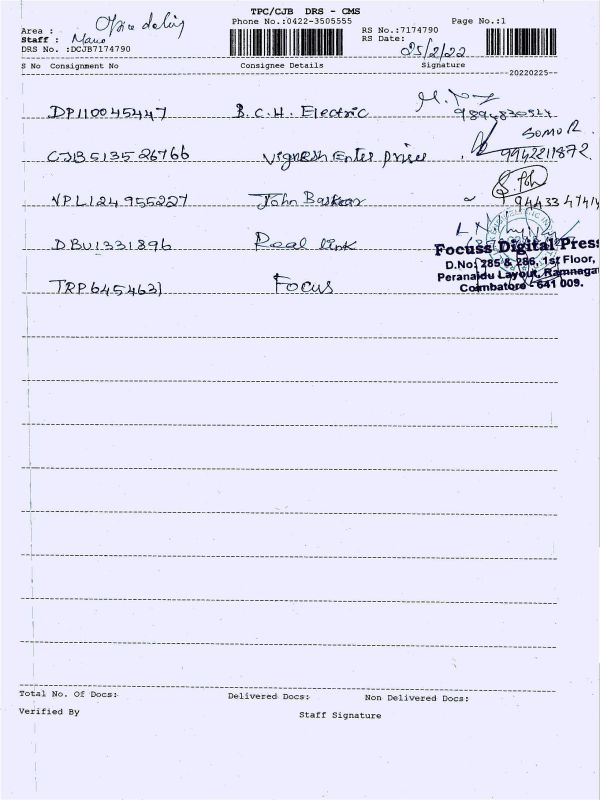 TPC/CJB DRS - CMS
Area : Office
Phone No.:0422-3505555
Page No.:1
Staff : Mano
RS No.:7174790
DRS No. :DCJB7174790
RS Date: 25/2/22
S No Consignment No Consignee Details Signature
20220225
DP110045447 B.C.H. Electric
CJB513526766 Vignesh Enter prises 9942211872
VPL124955227 John Baskar
DBU1331896 Real link
TRP6454631 Focus
Focuss Digital Press
D.No: 285 & 286, 1st Floor,
Peranaidu Layout, Ramnagar
Coimbatore - 641 009.
Total No. Of Docs: Delivered Docs: Non Delivered Docs:
Verified By Staff Signature